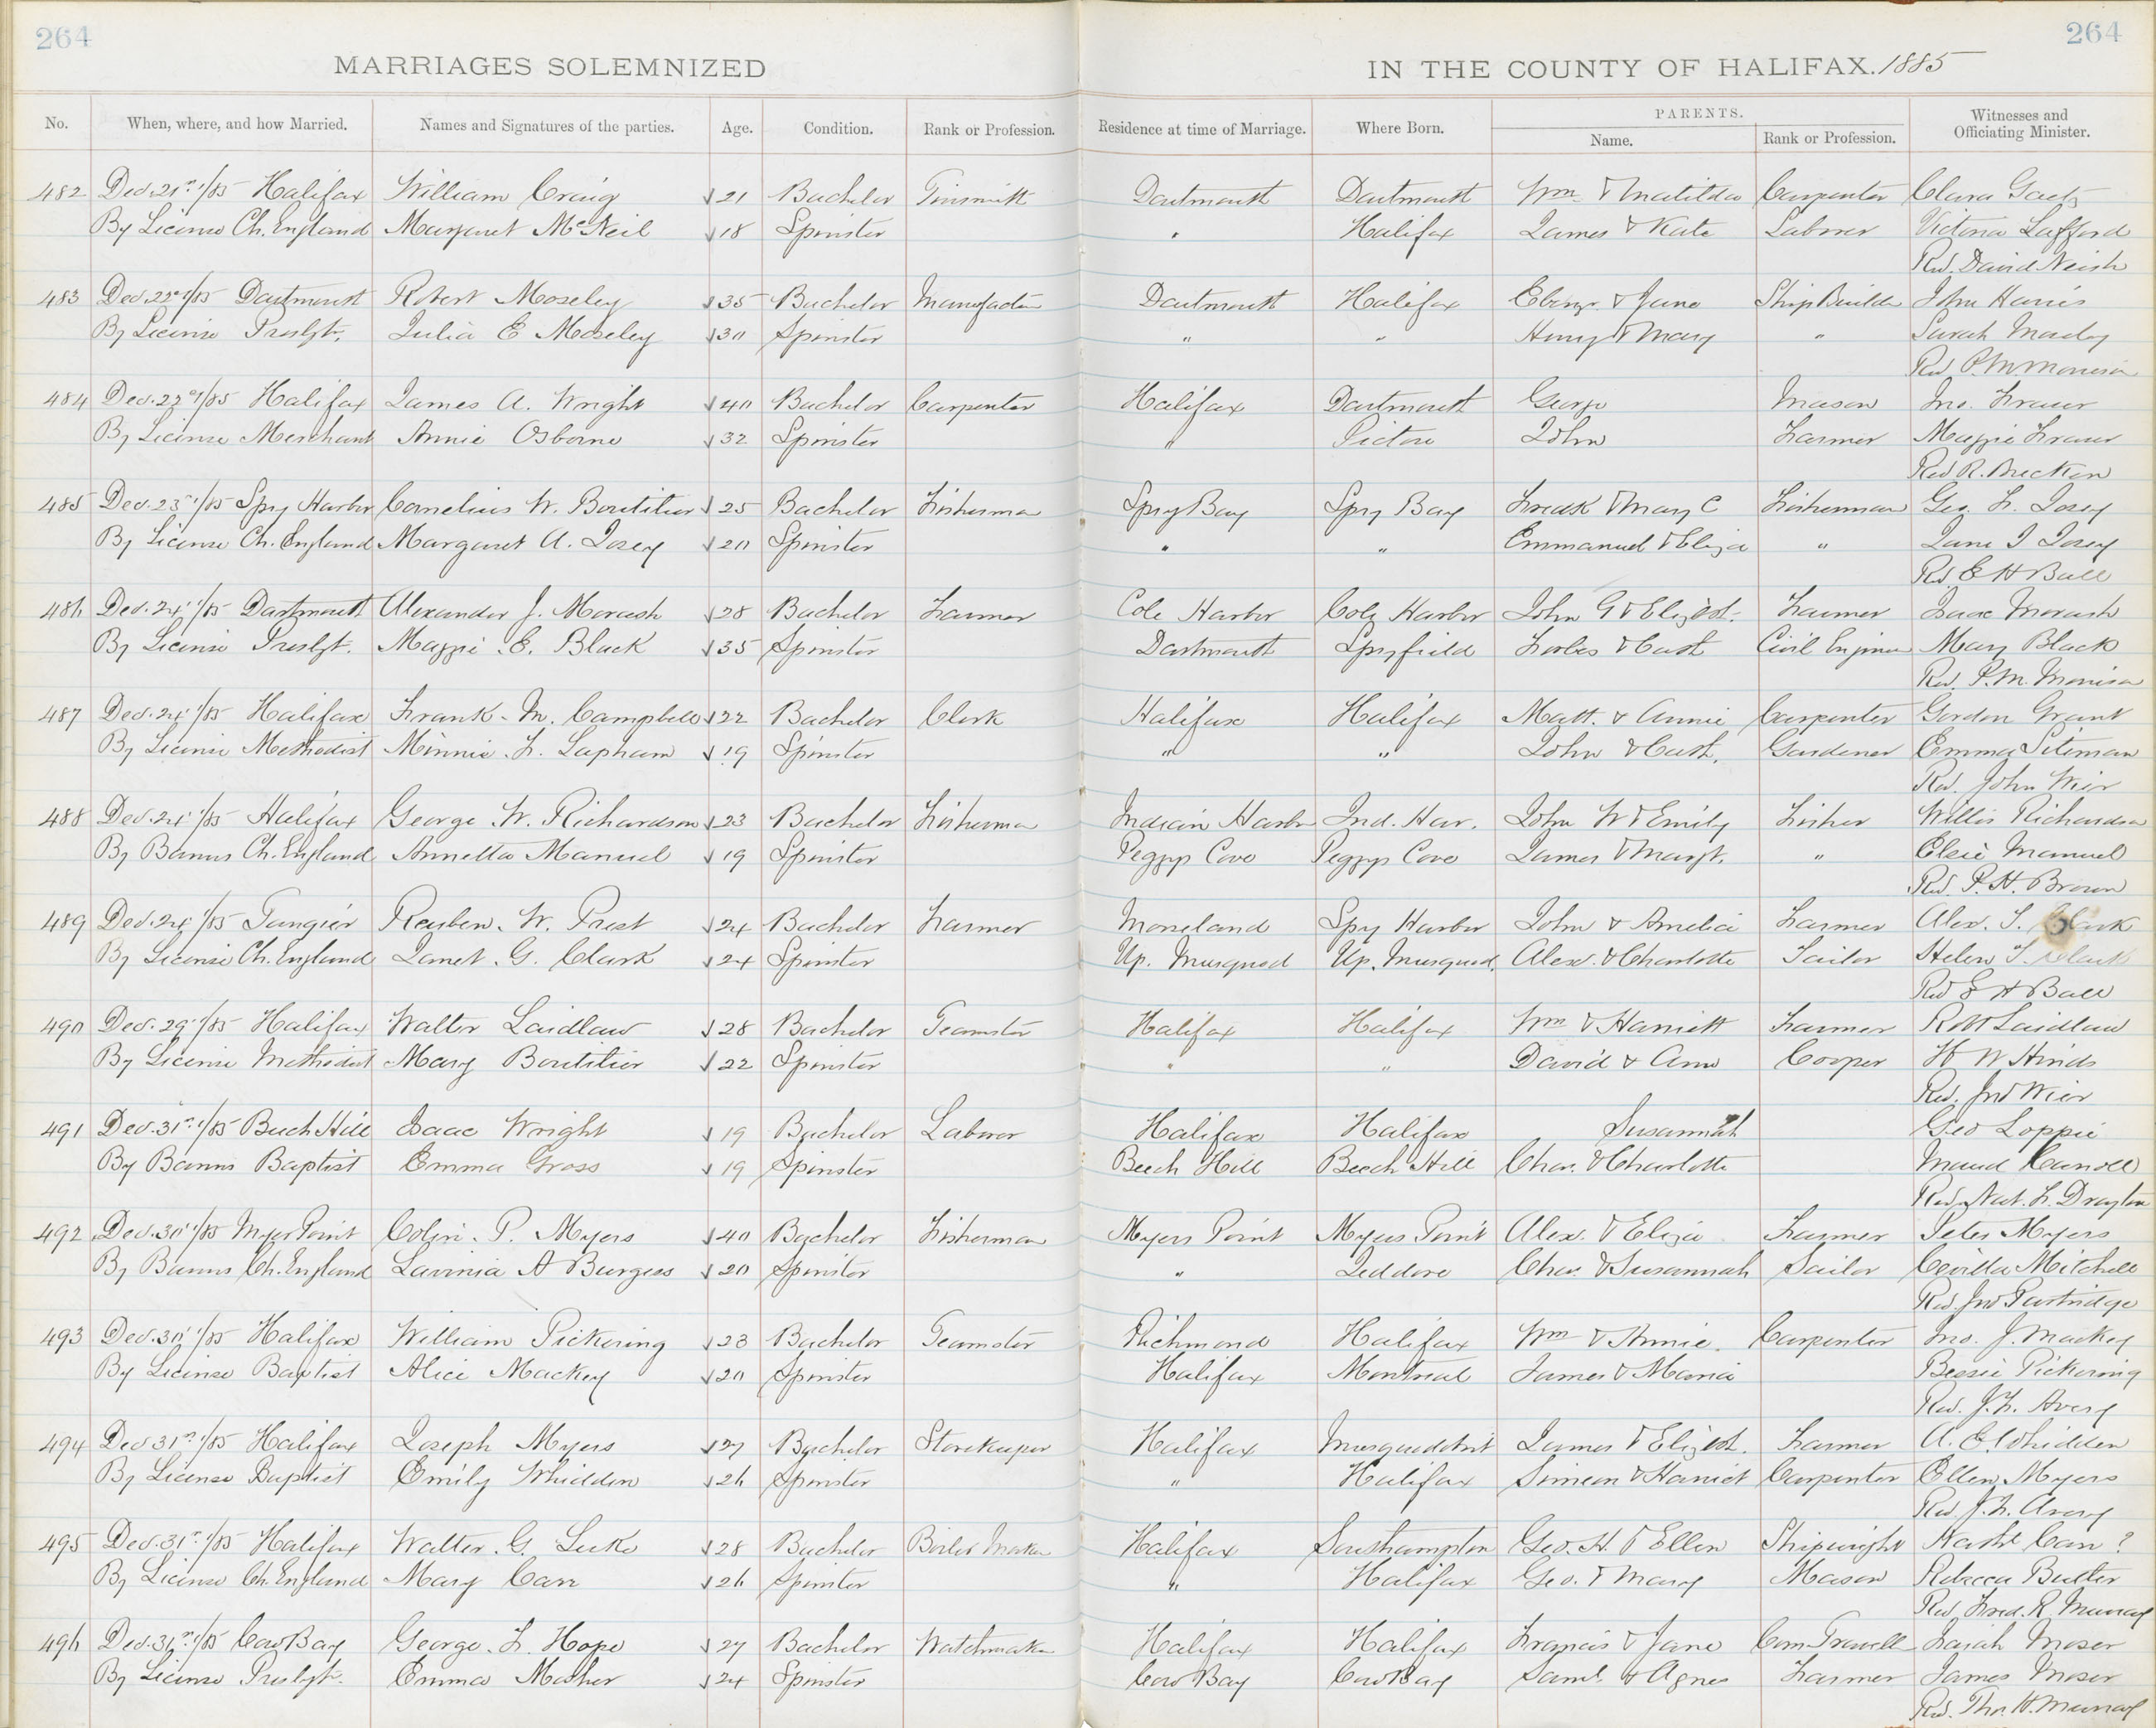 264
264
MARRIAGES SOLEMNIZED
IN THE COUNTY OF HALIFAX. 1885
No. When, where, and how Married. Names and Signatures of the parties. Age. Condition. Rank or Profession. Residence at time of Marriage. Where Born. PARENTS. Name. Rank or Profession. Witnesses and Officiating Minister.
482 Dec. 21st/85 Halifax William Craig 21 Bachelor Tinsmith Dartmouth Dartmouth Wm & Matilda Carpenter Clara Gaetz
By License Ch. England Margaret McNeil 18 Spinster " Halifax James & Kate Laborer Victoria Lafford
Rev. David Neish
483 Dec. 22nd/85 Dartmouth Robert Moseley 35 Bachelor Dartmouth Halifax Ebenzr. & Jane Ship Builder John Harris
By License Presbyt. Julia E Moseley 30 Spinster " " Henry & Mary " Sarah Mosely
Rev P. M Morrison
484 Dec. 22nd/85 Halifax James A. Wright 40 Bachelor Carpenter Halifax Dartmouth George Mason Jno. Fraser
By License Merchant Annie Osborne 32 Spinster " Pictou John Farmer Maggie Fraser
Rev R. Brecken
485 Dec. 23rd/85 Spry Harbor Cornelius W. Boutilier 25 Bachelor Fisherman Spry Bay Spry Bay Fredk & Mary C Fisherman Geo. F. Josey
By License Ch. England Margaret A. Josey 20 Spinster " " Emmanuel & Eliza " Jane I Josey
Rev. E H Ball
486 Dec. 24/85 Dartmouth Alexander J. Morash 28 Bachelor Farmer Cole Harbor Cole Harbor John G & Elizbth. Farmer Isaac Morash
By License Presbyt. Maggie E. Black 35 Spinster Dartmouth Spryfield Forbes & Cath Civil Engineer Mary Black
Rev. P. M. Morrison
487 Dec. 24/85 Halifax Frank M. Campbell 22 Bachelor Clerk Halifax Halifax Matt. & Annie Carpenter Gordon Grant
By License Methodist Minnie F. Lapham 19 Spinster " " John & Cath. Gardener Emma Siteman
Rev. John Wier
488 Dec. 24/85 Halifax George W. Richardson 23 Bachelor Fisherman Indian Harbor Ind. Har. John W & Emily Fisher Willis Richardson
By Banns Ch. England Annetta Manuel 19 Spinster Peggys Cove Peggys Cove James & Margt. " Elsie Manuel
Rev. P. H. Brown
489 Dec. 24/85 Tangier Reuben W. Prest 24 Bachelor Farmer Mooseland Spry Harbor John & Amelia Farmer Alex. T. Clark
By License Ch. England Janet G. Clark 24 Spinster Up. Musquod Up. Musquod. Alex. & Charlotte Tailor Helen T. Clark
Rev E H Ball
490 Dec. 29/85 Halifax Walter Laidlaw 28 Bachelor Teamster Halifax Halifax Wm & Harriett Farmer Robt Laidlaw
By License Methodist Mary Boutilier 22 Spinster " " David & Ann Cooper H W Hinds
Rev. Jno Wier
491 Dec. 31st/85 Beech Hill Isaac Wright 19 Bachelor Laborer Halifax Halifax Susannah Geo Loppie
By Banns Baptist Emma Gross 19 Spinster Beech Hill Beech Hill Chas. & Charlotte Maud Carroll
Rev. Nat. F. Drayton
492 Dec. 30/85 Myers Point Colin P. Myers 40 Bachelor Fisherman Myers Point Myers Point Alex. & Eliza Farmer Peter Myers
By Banns Ch. England Lavinia A Burgess 20 Spinster " Jeddore Chas. & Susannah Sailor Mitchell
Rev. Jno Partridge
493 Dec. 30/85 Halifax William Pickering 23 Bachelor Teamster Richmond Halifax Wm & Annie. Carpenter Jno. J. Mackey
By License Baptist Alice Mackey 20 Spinster Halifax Montreal James & Maria Bessie Pickering
Rev. J. F. Avery
494 Dec 31st/85 Halifax Joseph Myers 27 Bachelor Storekeeper Halifax Musquodoboit James & Elizbth. Farmer A. E Whidden
By License Baptist Emily Whidden 26 Spinster " Halifax Simeon & Harriet Carpenter Ellen Myers
Rev. J. F. Avery
495 Dec. 31st/85 Halifax Walter G. Luke 28 Bachelor Boiler Maker Halifax Southampton Geo. H. & Ellen Shipwright Carr ?
By License Ch. England Mary Carr 26 Spinster " Halifax Geo. & Mary Mason Rebecca Butler
Rev. Fred. R. Murray
496 Dec. 31st/85 Cow Bay George F. Hope 27 Bachelor Watchmaker Halifax Halifax Francis & Jane Com. Travell Isaiah Moser
By License Presbyt. Emma Mosher 24 Spinster Cow Bay Cow Bay Saml. & Agnes Farmer James Moser
Rev. Thos. H. Murray